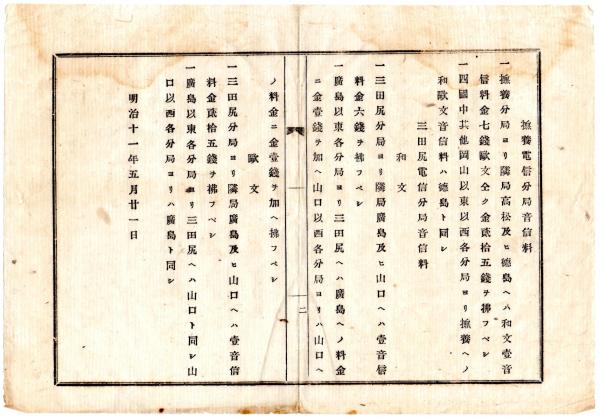 撫養電信分局音信料
一撫養分局ヨリ隣局高松及ヒ徳島ヘハ和文壹音
信料金七錢歐文仝ク金貳拾五錢ヲ拂フベシ
一四國中其他岡山以東以西各分局ヨリ撫養ヘノ
和歐文音信料ハ徳島ト同シ
三田尻電信分局音信料
和文
一三田尻分局ヨリ隣局廣島及ヒ山口ヘハ壹音信
料金六錢ヲ拂フベシ
一廣島以東各分局ヨリ三田尻ヘハ廣島ヘノ料金
ニ金壹錢ヲ加ヘ山口以西各分局ヨリハ山口ヘ
二
ノ料金ニ金壹錢ヲ加ヘ拂フベシ
歐文
一三田尻分局ヨリ隣局廣島及ヒ山口ヘハ壹音信
料金貳拾五錢ヲ拂フベシ
一廣島以東各分局ヨリ三田尻ヘハ山口ト同シ山
口以西各分局ヨリハ廣島ト同シ
明治十一年五月廿一日